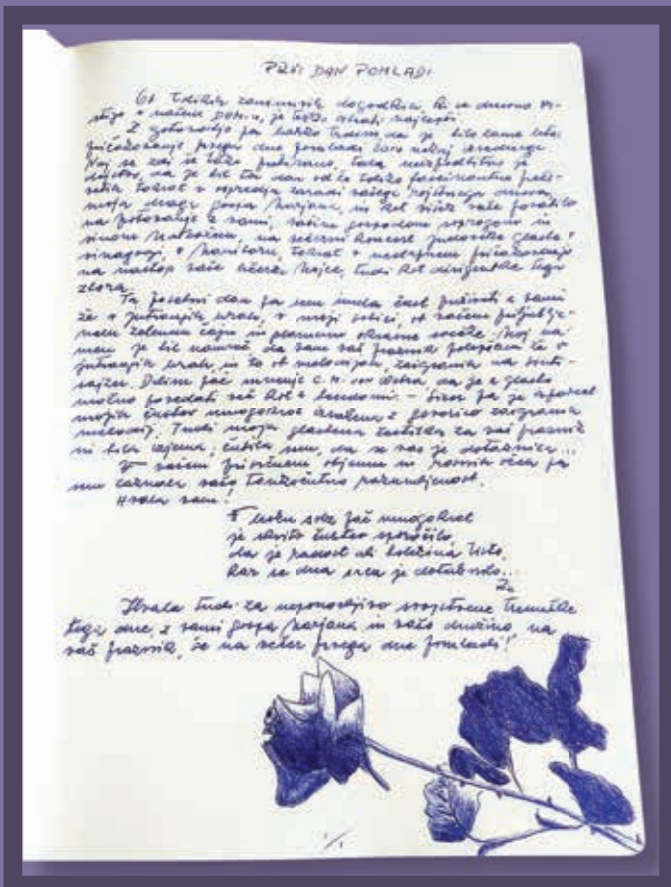 PRVI DAN POMLADI
Ob toliko zanimivih dogodkih, ki se dnevno
v našem DOM-u, je težko izbrati najlepši.
Z gotovostjo pa lahko trdim, da je bilo само letos
pričakovanje prvega dne pomladi zares nekaj izrednega.
Naj se zdi še tako pretirano, toda neizpodbitno je
dejstvo, da je bil ta dan od
tokrat v ospredju zaradi vašega rojstnega dneva,
moja draga gospa Marjana, in kot višek vaše povabilo
na potovanje z vami, vašim gospodom soprogom in
sinom na večerni koncert judovske glasbe v
sinagogi, v Mariboru, tokrat v pričakovanju
na nastop vaše hčerke Mojce, tudi kot dirigentke tega
zbora.
Ta posebni dan pa sem imela čast preživeti z vami
že v jutranjih urah, v moji sobici, ob vašem priljublje-
nem zelenem čaju in plamenu okrasne svečke. Moj na-
men je bil namreč, da vam vaš praznik polepšam že v
jutranjih urah in to ob melodijah, zaigranih na sinti-
sajzer. Delim pač mnenje C. M. von Webra, da je z glasbo
možno povedati več kot z besedami. – Sicer pa je
mojih čustev mnogokrat izražena z govorico zaigrane
melodije. Tudi moja glasbena čestitka za vaš praznik
ni bila izjema; čutila sem, da se vas je dotaknila...
V vašem prisrčnem objemu in rosnih očeh pa
sem zaznala vašo tankočutno razumljenost.
Hvala vam!
V soku solz pač mnogokrat
je skrito čustvo sporočilo,
da je radost ali bolečina tisto,
kar se dna srca je dotaknilo...
Hvala tudi za neponovljivo svojstvene trenutke
tega dne, z vami gospa Marjana in vašo družino na
vaš praznik, še na večer prvega dne pomladi!